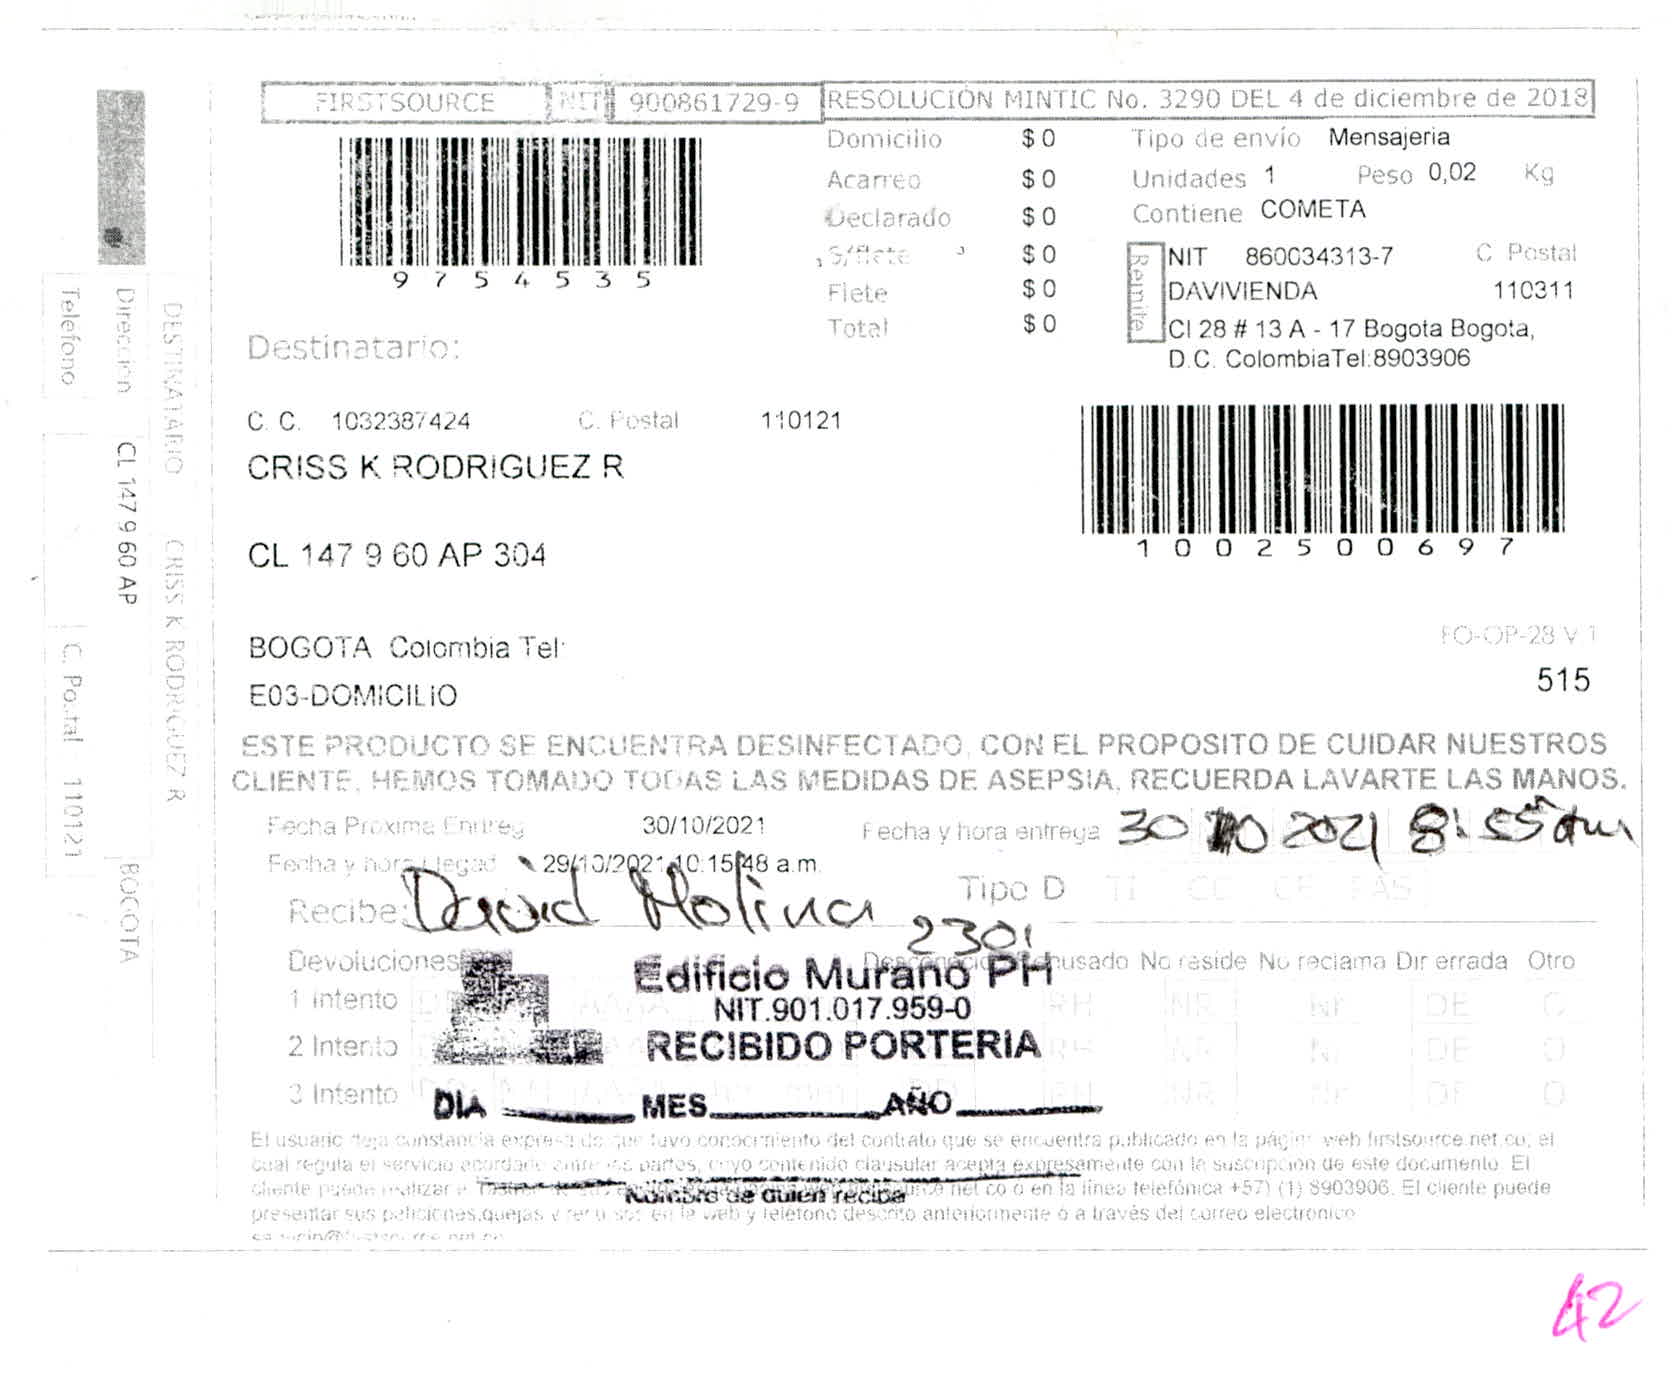 FIRSTSOURCE NIT 900861729-9 RESOLUCIÓN MINTIC No. 3290 DEL 4 de diciembre de 2018
Domicilio $ 0
Acarreo $ 0
Declarado $ 0
S/flete $ 0
Flete $ 0
Total $ 0
Tipo de envío Mensajeria
Unidades 1 Peso 0,02 Kg
Contiene COMETA
Remite
NIT 860034313-7 C Postal
DAVIVIENDA 110311
Cl 28 # 13 A - 17 Bogota Bogota,
D.C. ColombiaTel:8903906
9754535
Destinatario:
C. C. 1032387424 C. Postal 110121
CRISS K RODRIGUEZ R
CL 147 9 60 AP 304
1002500697
BOGOTA Colombia Tel:
E03-DOMICILIO
FO-OP-28 V 1
515
ESTE PRODUCTO SE ENCUENTRA DESINFECTADO, CON EL PROPOSITO DE CUIDAR NUESTROS
CLIENTE, HEMOS TOMADO TODAS LAS MEDIDAS DE ASEPSIA, RECUERDA LAVARTE LAS MANOS.
Fecha Proxima Entreg 30/10/2021 Fecha y hora entrega 30 10 2021 8:55 am
Fecha y hora llegad 29/10/2021 10:15:48 a.m.
Tipo D TI CC CE PAS
Recibe: David Molina
2301
Devoluciones Desconocido Rehusado No reside No reclama Dir errada Otro
1 Intento RH NR Nr DE O
2 Intento RH NR Nr DE O
3 Intento DD RH NR Nr DE O
Edificio Murano PH
NIT.901.017.959-0
RECIBIDO PORTERIA
DIA MES AÑO
Nombre de quien recibe
El usuario deja constancia expresa de que tuvo conocimiento del contrato que se encuentra publicado en la página web firstsource.net.co; el
cual regula el servicio acordado entre las partes, cuyo contenido clausular acepta expresamente con la suscripción de este documento. El
cliente puede realizar net co o en la línea telefónica +57) (1) 8903906. El cliente puede
presentar sus peticiones,quejas y recursos en la web y teléfono descrito anteriormente o a través del correo electronico
DESTINATARIO CRISS K RODRIGUEZ R
Direccion CL 147 9 60 AP BOGOTA
Telefono C. Postal 110121
42